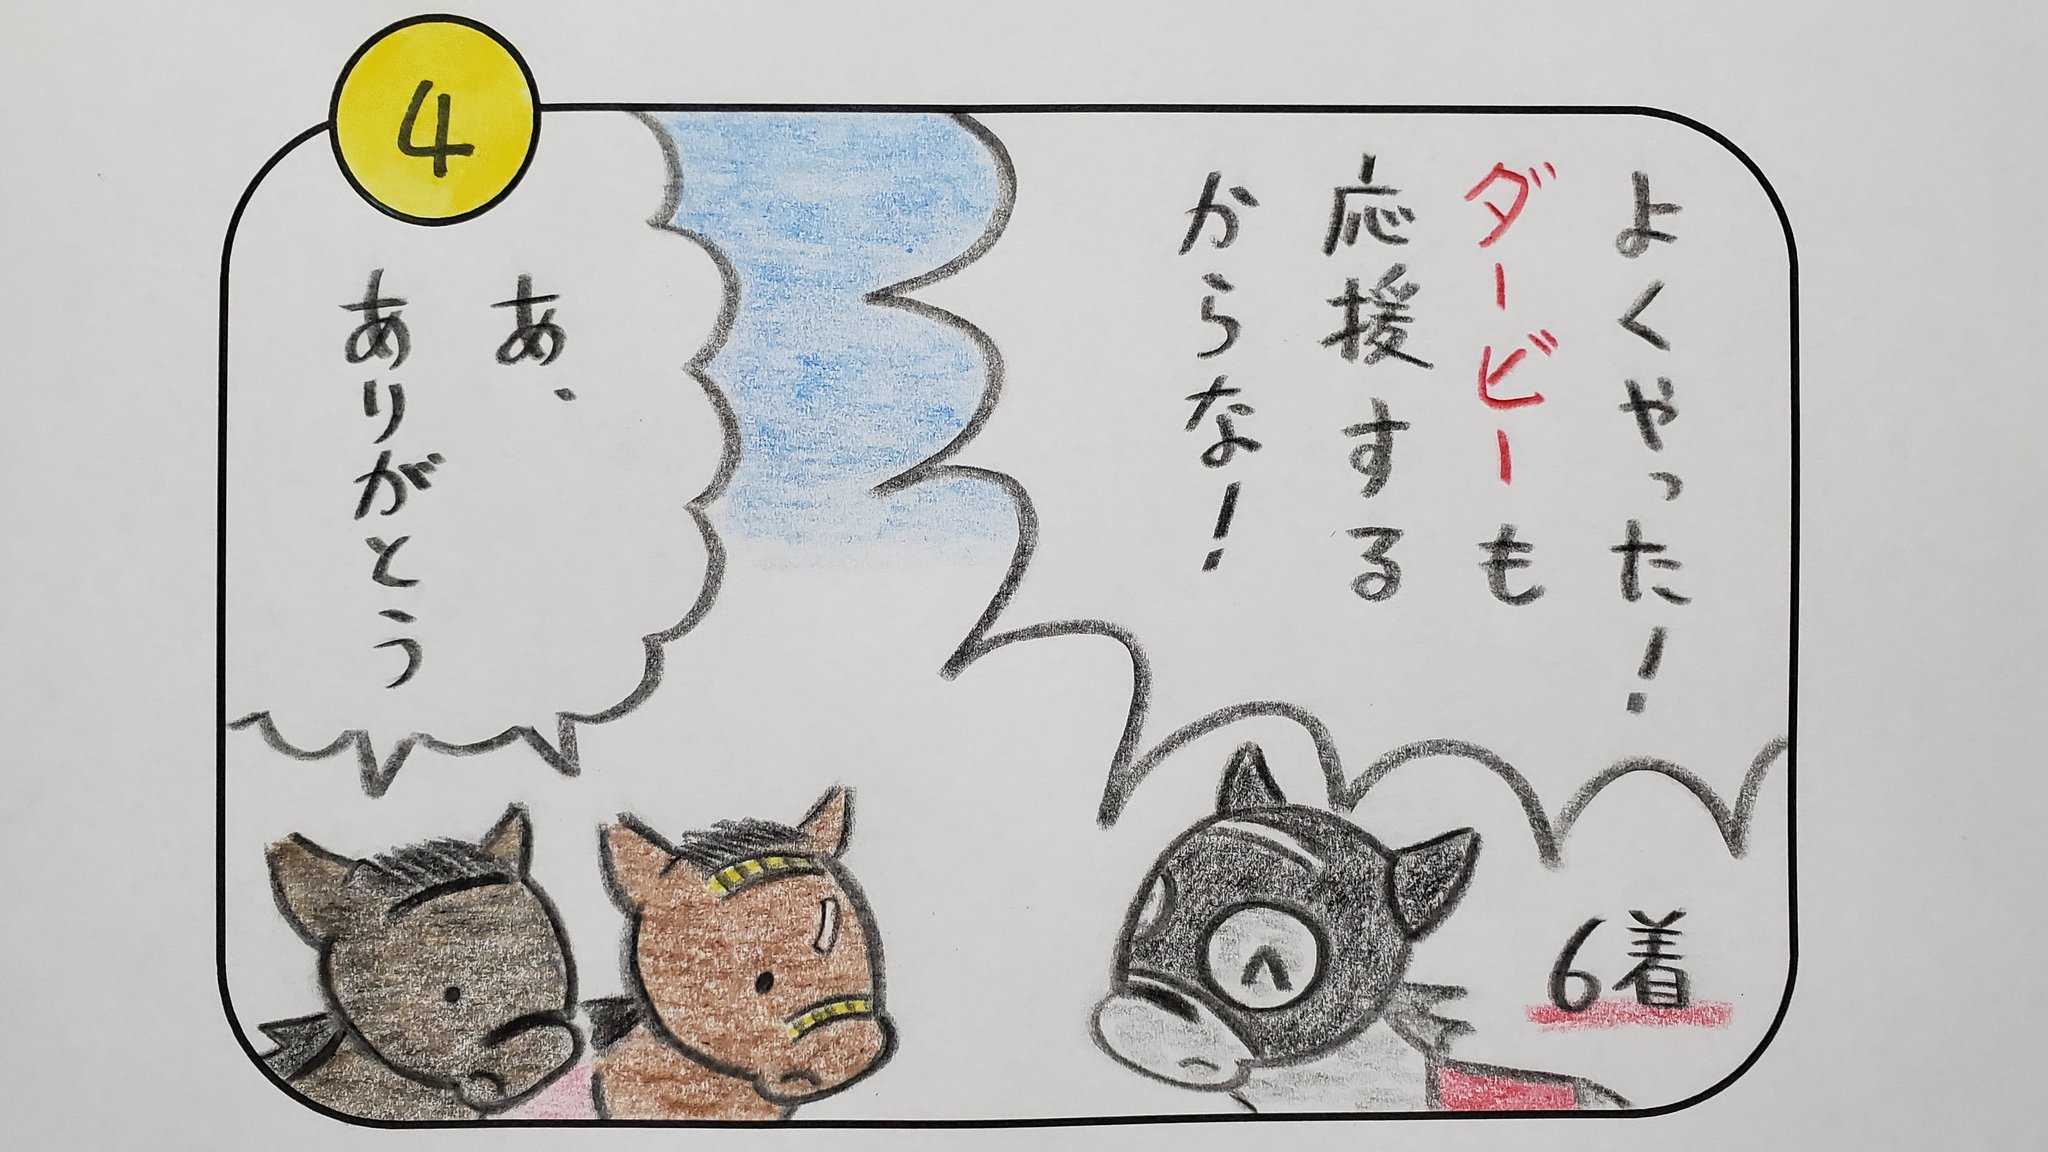 4
よくやった!
ダービーも
応援する
からな!
あ、
ありがとう
6着